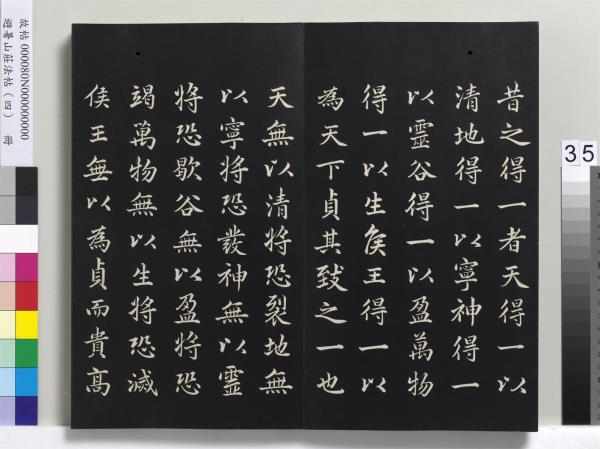 昔之得一者天得一以
清地得一以寧神得一
以靈谷得一以盈萬物
得一以生矦王得一以
為天下貞其致之一也
天無以清將恐裂地無
以寧將恐發神無以靈
將恐歇谷無以盈將恐
竭萬物無以生將恐滅
侯王無以為貞而貴高
故帖 000080N000000000
避暑山莊法帖（四） 冊
35